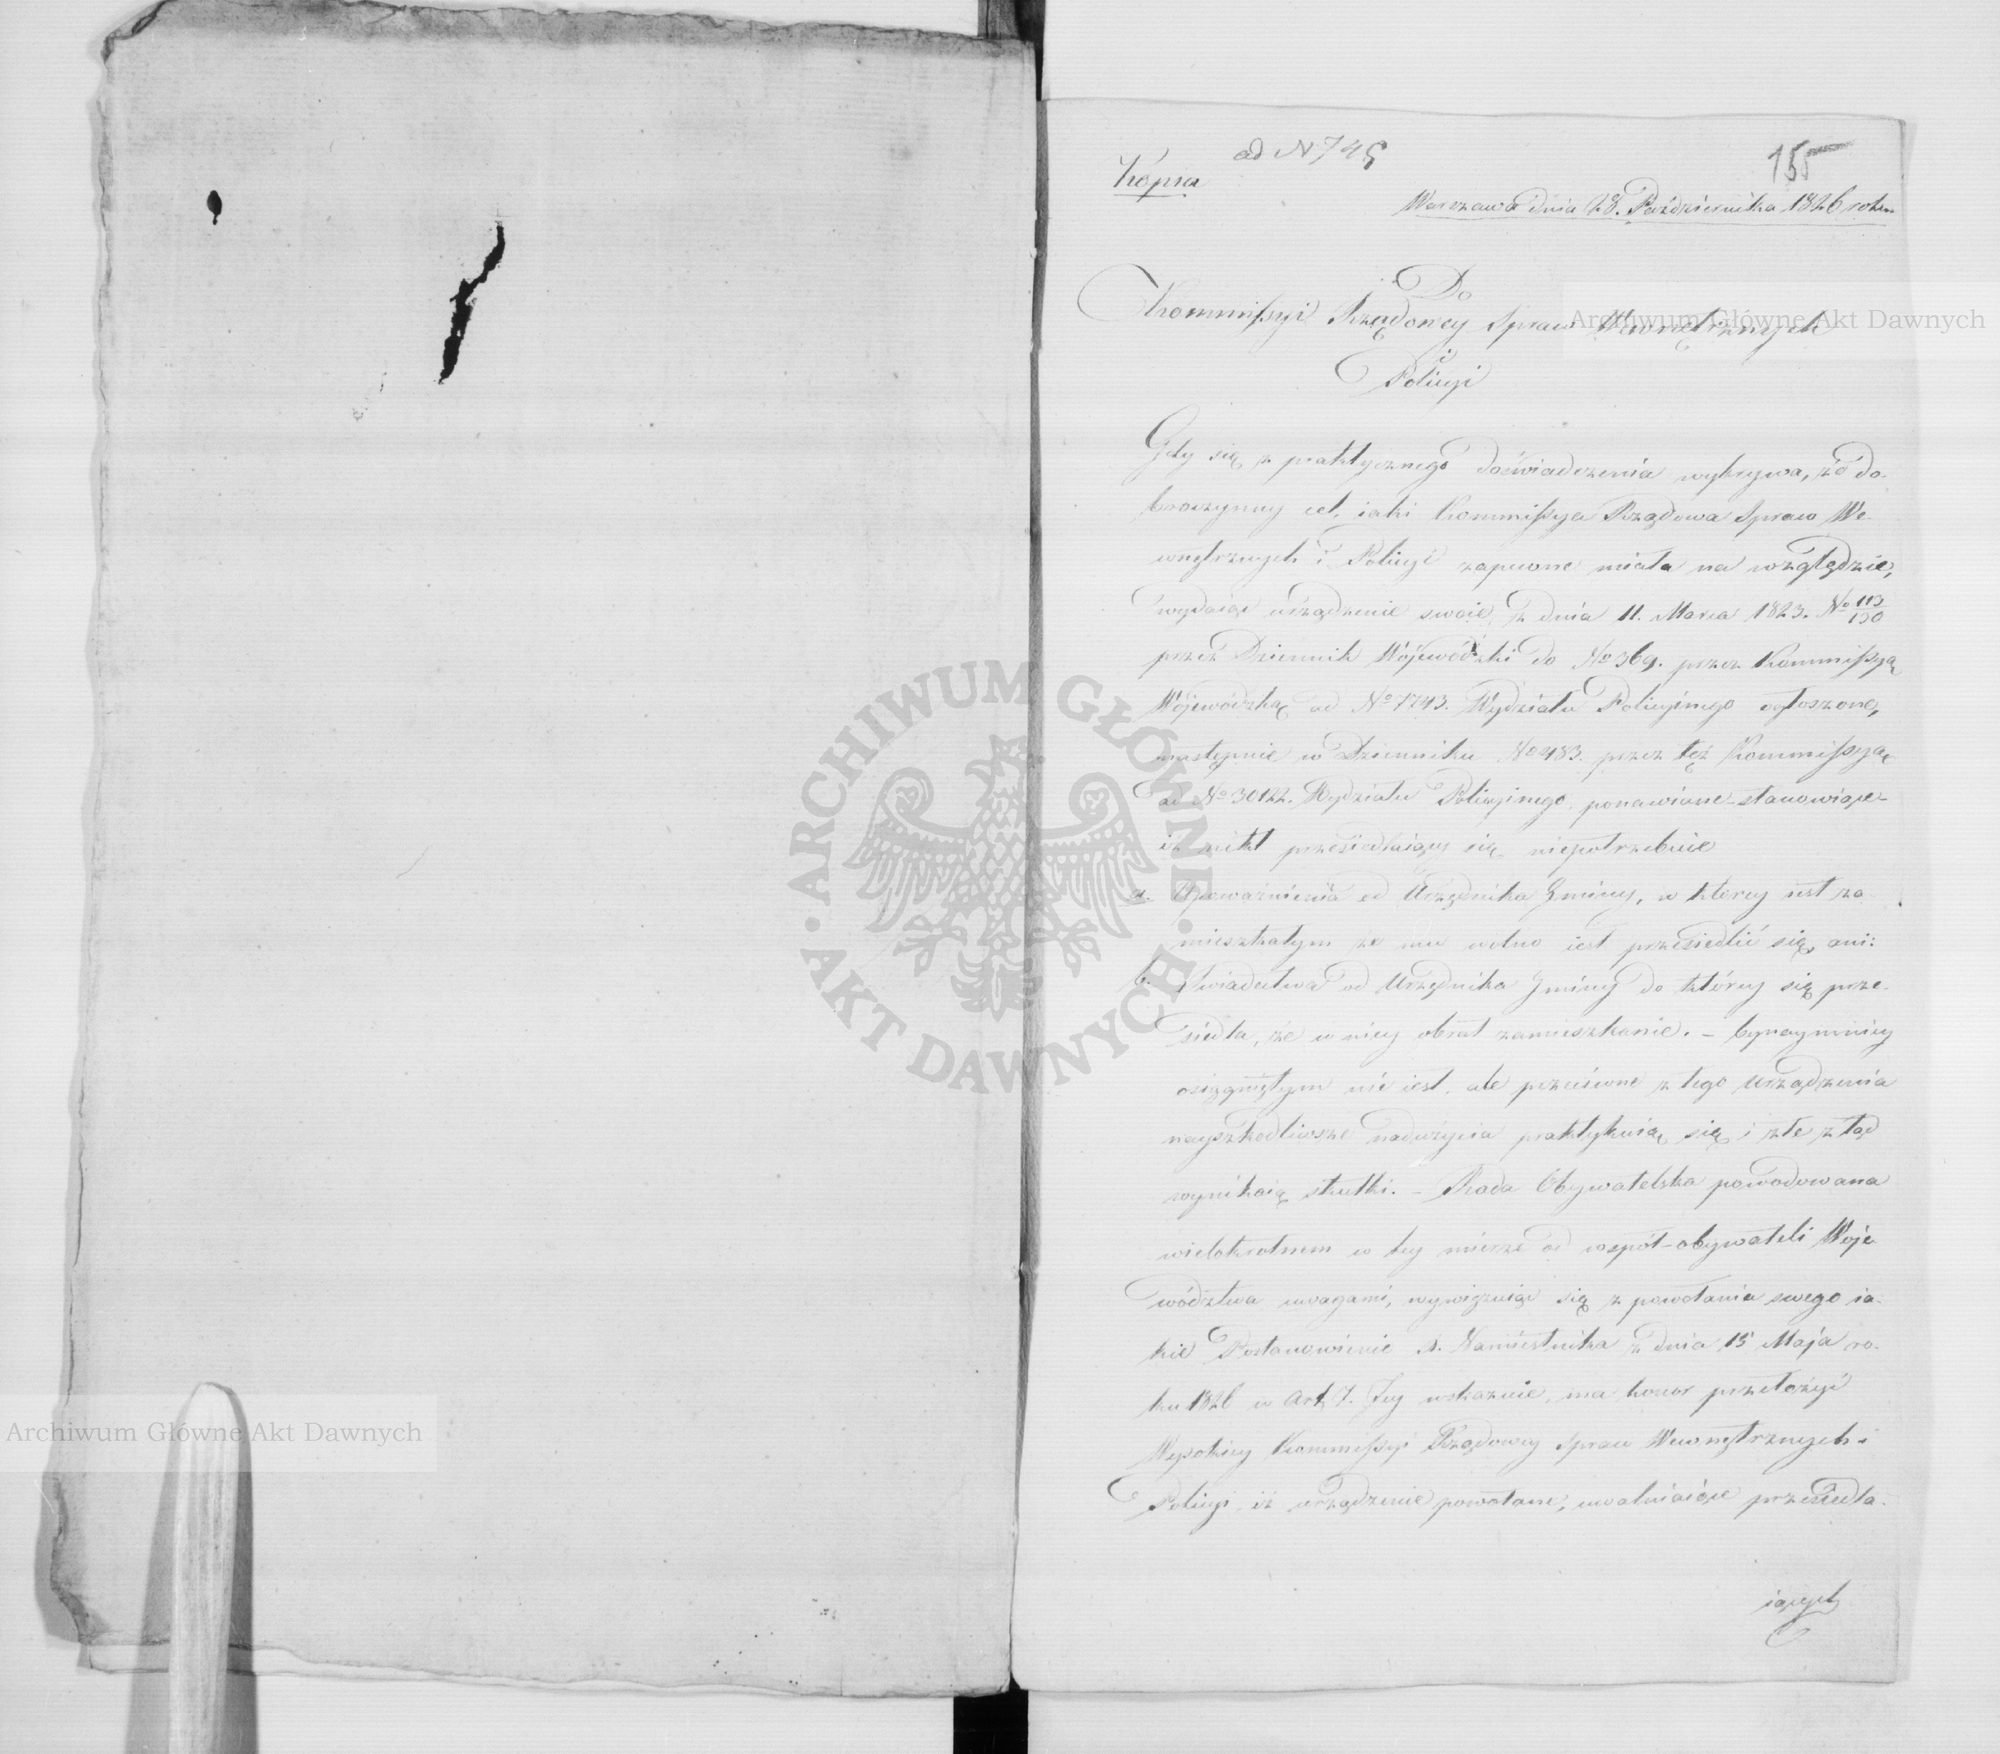 ad N 745
155
Kópia
Warszawa dnia 28. Października 1826 roku
Do
Kommissyi Rządowey Spraw Wewnętrznych
i
Policyi
Gdy się z praktycznego doświadczenia wykrywa, że do-
broczynny cel, iaki Kommissya Rządowa Spraw We-
wnętrznych i Policyi zapewne miała na względzie,
wydaiąc urządzenie swoie z dnia 11. Marca 1823. No 113/130
przez Dziennik Wojewódzki do No 369. przez Kommissyą
Wojewódzką ad No 7743. Wydziału Policyinego ogłoszone,
następnie w Dzienniku No 483. przez też Kommissyą
ad No 30122. Wydziału Policyinego ponawiane stanowiące
iż nikt przesiedlaiący się niepotrzebuie
a. Upoważnienia od Urzędnika Gminy, w którey iest za-
mieszkałym że mu wolno iest przesiedlić się, ani:
b. Swiadectwa od Urzędnika Gminy do którey się prze-
siedla, że w niey obrał zamieszkanie. – bynaymniey
osiągniętym nie iest, ale przeciwne z tego Urządzenia
nayszkodliwsze nadużycia praktykuią się i złe z tąd
wynikaią skutki. – Rada Obywatelska powodowana
wielokrotnem w tey mierze od współ-obywateli Woje
wództwa uwagami, wywięzuiąc się z powołania swego ia-
kie Postanowienie X. Namiestnika z dnia 15 Maja ro-
ku 1826 w Art. 7. Jey wskazuie, ma honor przełożyć
Wysokiey Kommissyi Rządowey Spraw Wewnętrznych i
Policyi iż urządzenie powołane, uwalniaiące przesiedla-
iących
Archiwum Główne Akt Dawnych
Archiwum Główne Akt Dawnych
· ARCHIWUM GŁÓWNE · AKT DAWNYCH